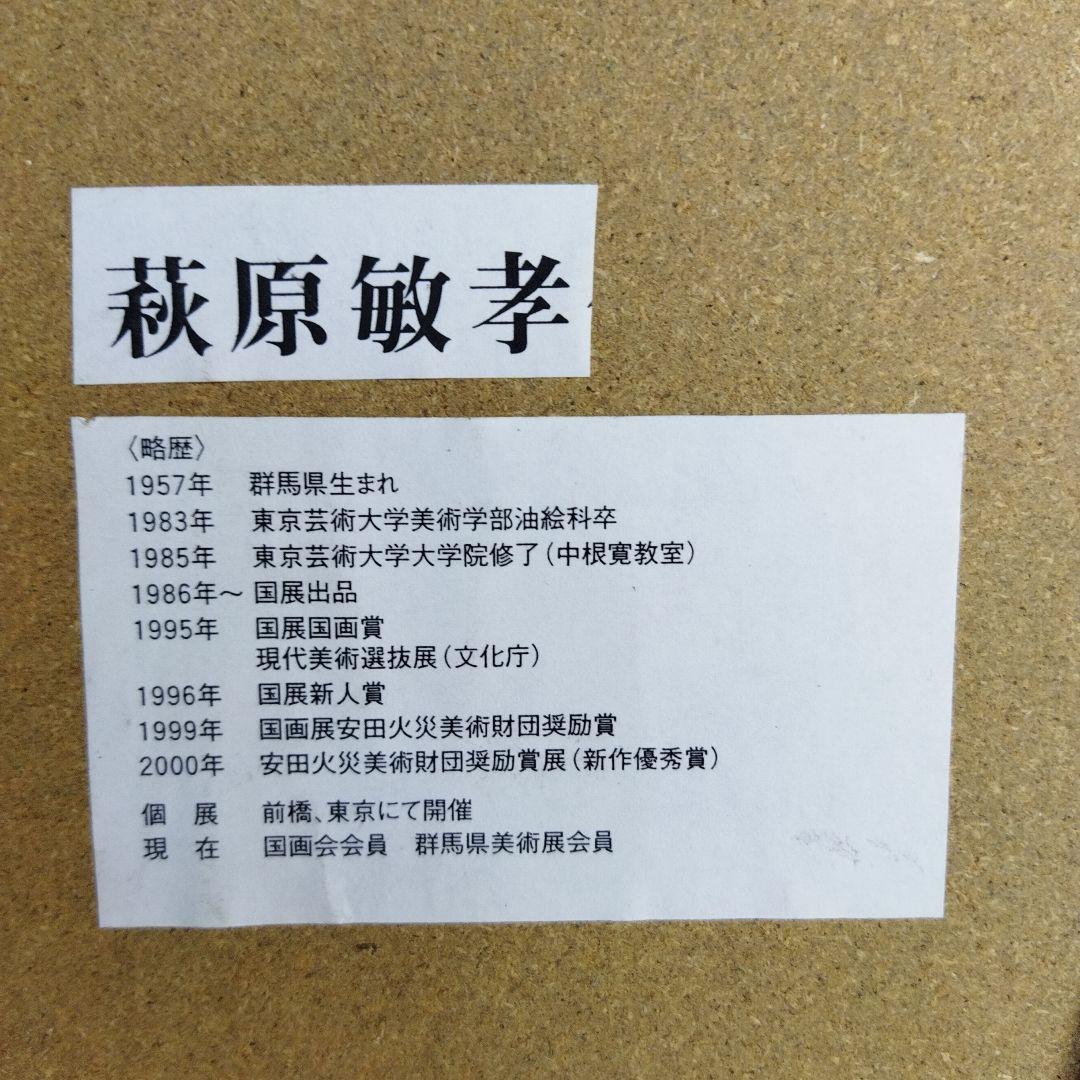 萩原敏孝
〈略歴〉
1957年 群馬県生まれ
1983年 東京芸術大学美術学部油絵科卒
1985年 東京芸術大学大学院修了(中根寛教室)
1986年～ 国展出品
1995年 国展国画賞
現代美術選抜展(文化庁)
1996年 国展新人賞
1999年 国画展安田火災美術財団奨励賞
2000年 安田火災美術財団奨励賞展(新作優秀賞)
個 展 前橋、東京にて開催
現 在 国画会会員 群馬県美術展会員